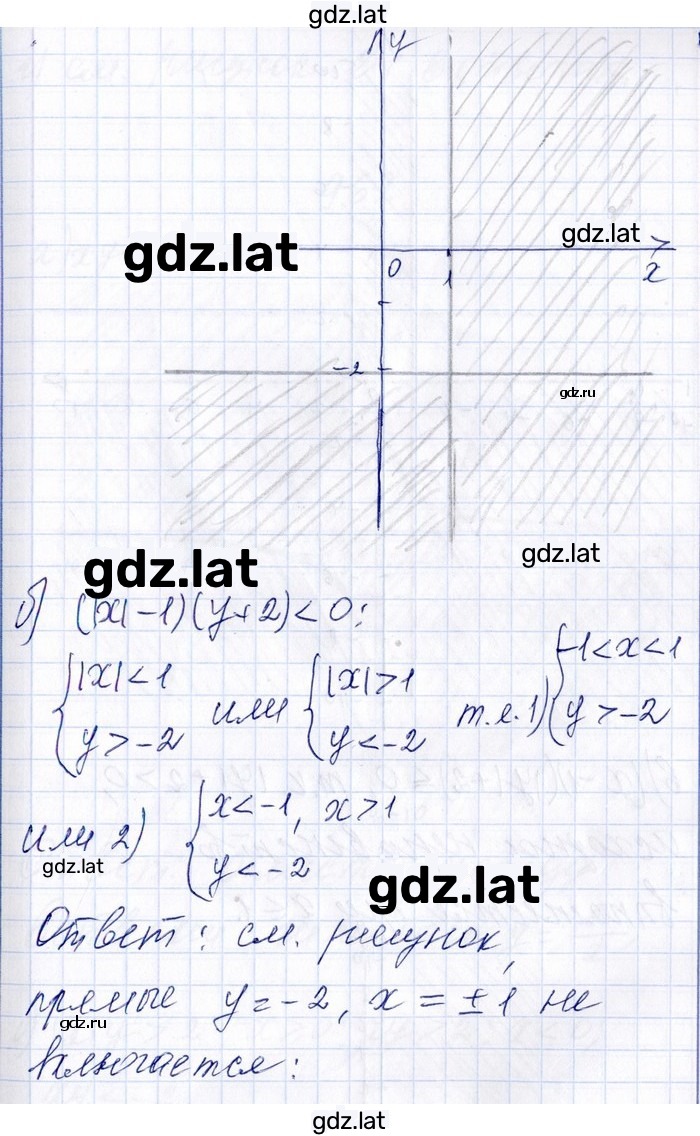 gdz.lat
y
gdz.lat
gdz.lat
0 1 x
-2
gdz.ru
gdz.lat
gdz.lat
б) (|x|-1)(y+2)<0;
{|x|<1 y>-2 или {|x|>1 y<-2 т.е. 1) {-1<x<1 y>-2
или 2) {x<-1, x>1 y<-2
gdz.lat
gdz.lat
Ответ: см. рисунок,
прямые y=-2, x=±1 не
gdz.ru
включается:
gdz.lat